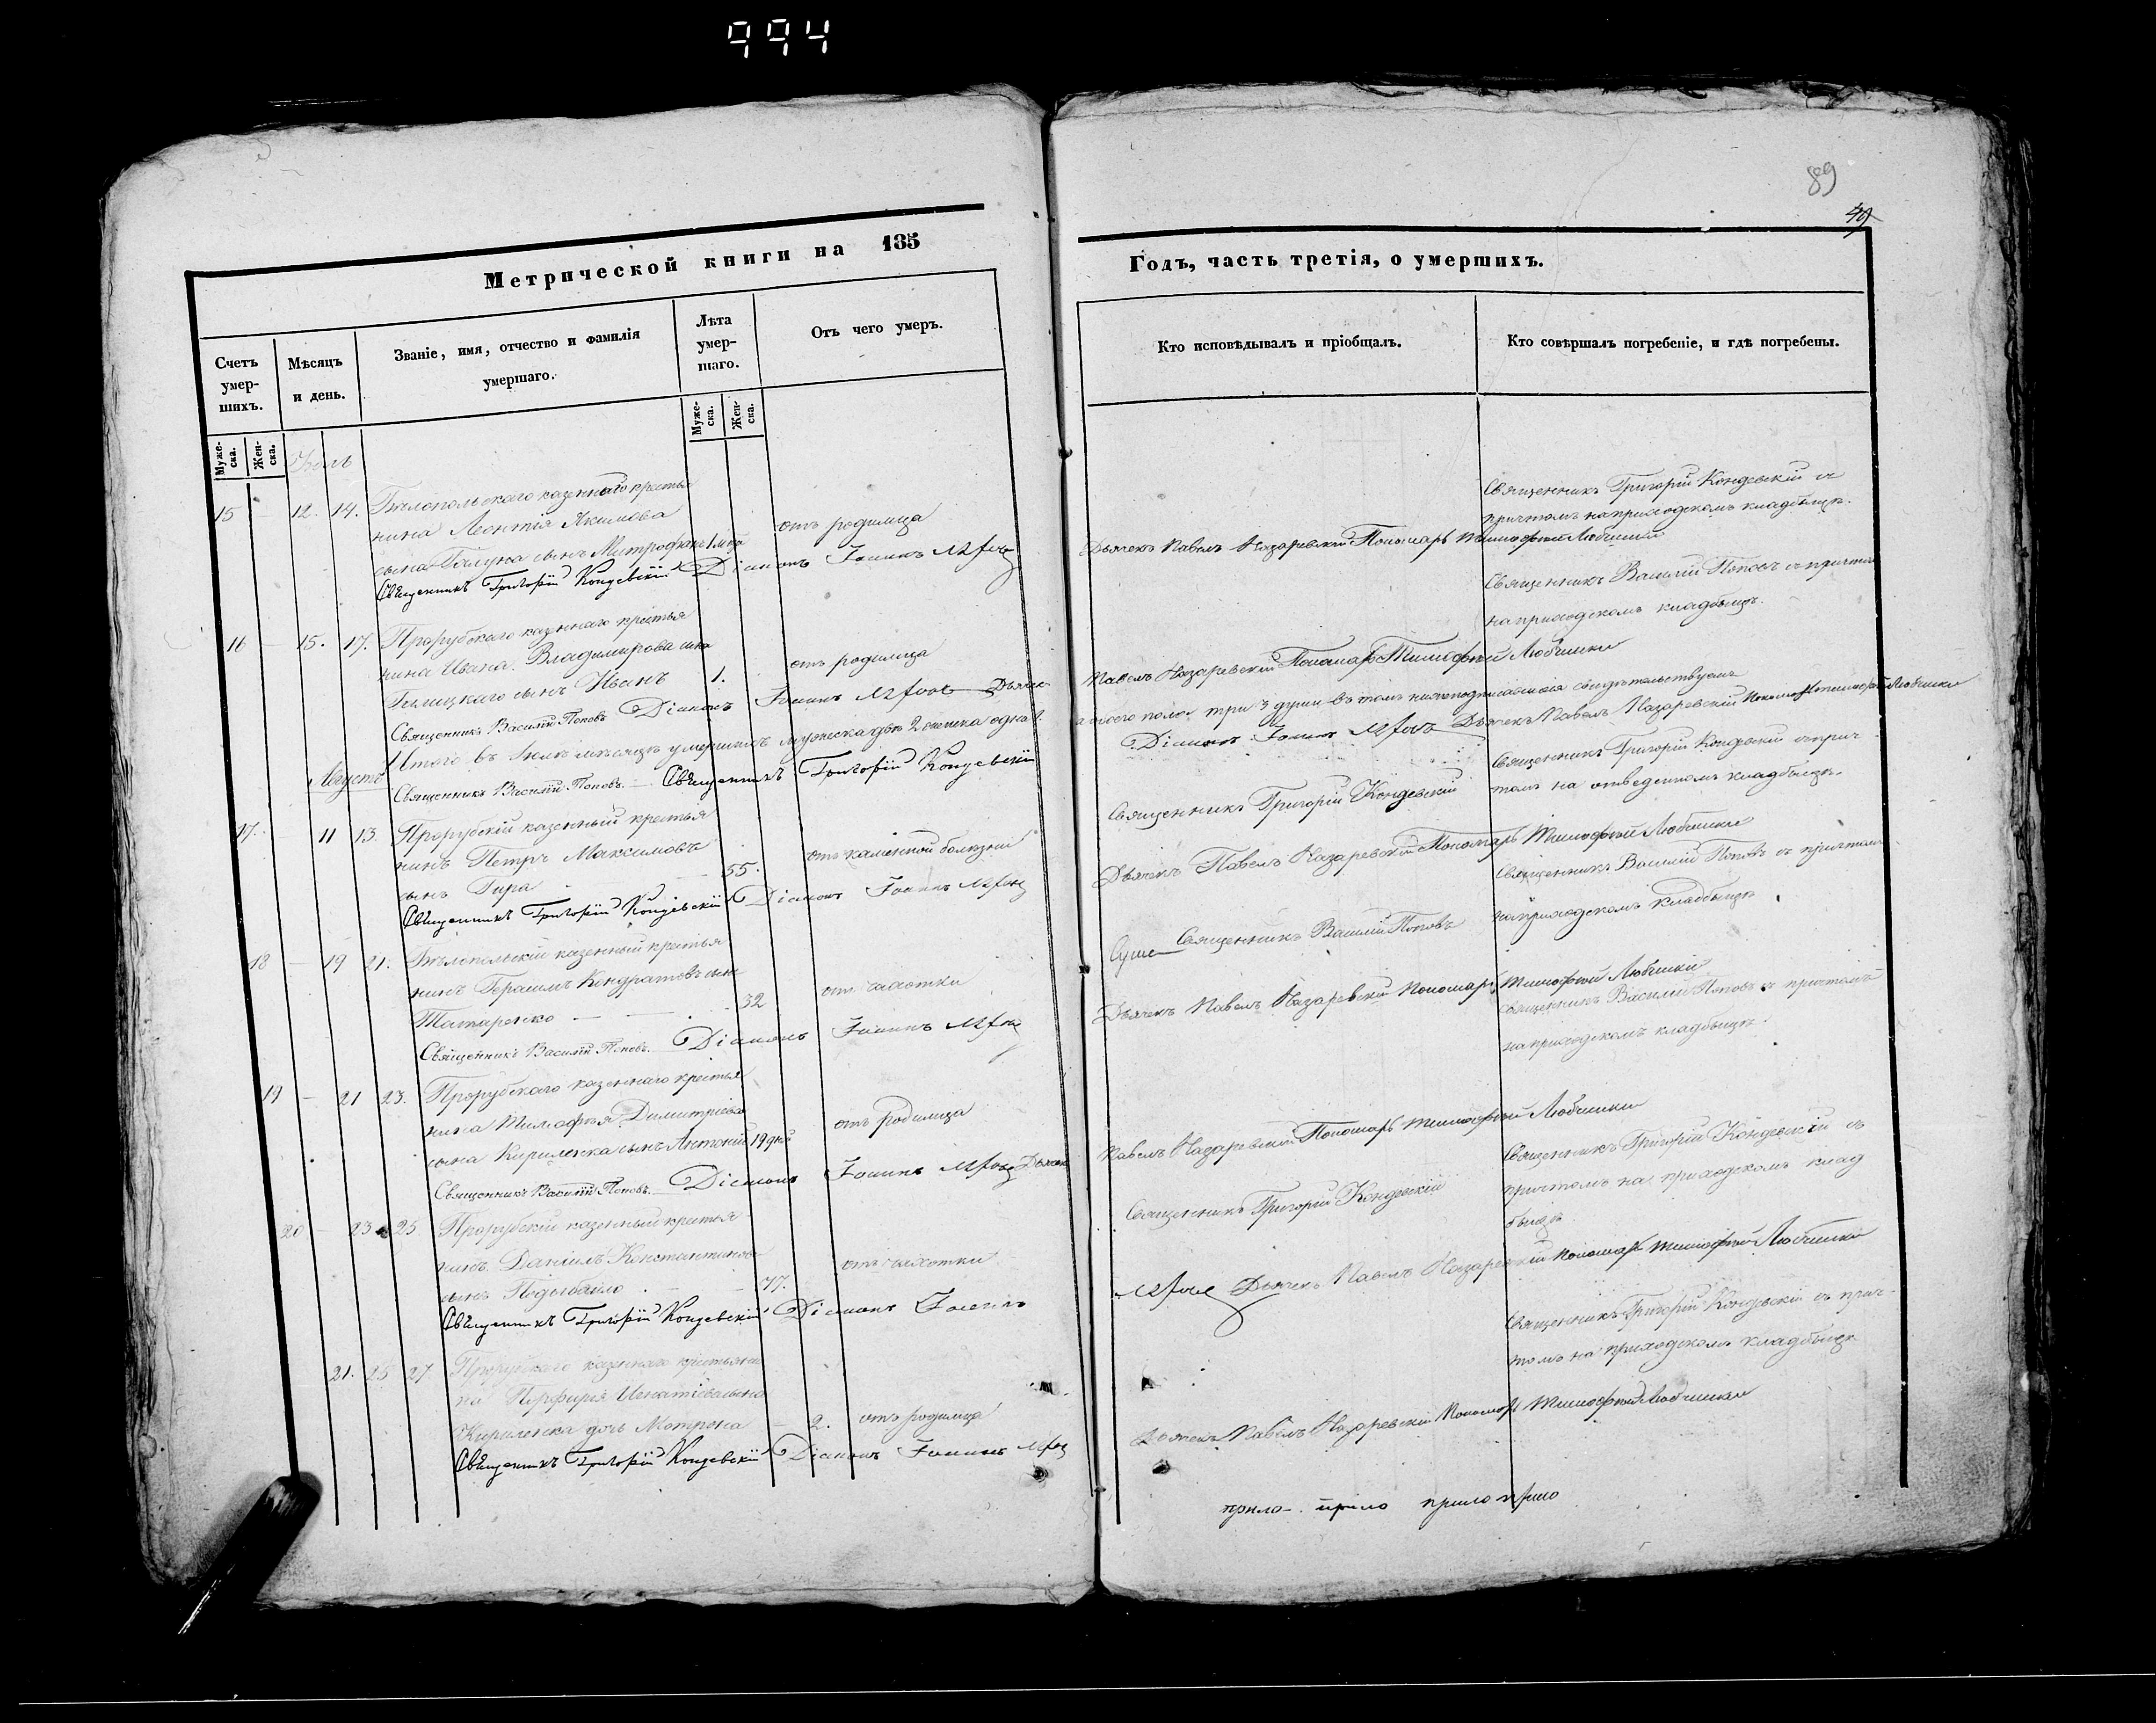 994
89
49
Метрической книги на 185
Годъ, часть третія, о умершихъ.
Счетъ умер-шихъ.
Мѣсяцъ и день.
Званіе, имя, отчество и фамилія умершаго.
Лѣта умер-шаго.
Отъ чего умеръ.
Кто исповѣдывалъ и пріобщалъ.
Кто совѣршалъ погребеніе, и гдѣ погребены.
Муже-ска.
Жен-ска.
Муже-ска.
Жен-ска.
15 — 12. 14. Бѣлопольскаго казеннаго крестья
нина Леонтія Якимова
сына Галуна сынъ Митрофанъ 1 отъ родимца
Священникъ Григорій Кондевскій съ
причтомъ на приходскомъ кладбищѣ.
Священникъ Григорій Кондевскій Діаконъ Іоаннъ
Дьячекъ Павелъ Назаревскій Пономарь Тимофей Любицкій
16 — 15. 17. Прорубскаго казеннаго крестья
нина Ивана Владимирова сына
сынъ Иванъ 1. отъ родимца
Священникъ Василій Поповъ съ причтом
на приходскомъ кладбищѣ.
Священникъ Василій Поповъ Діаконъ Іоаннъ Дьячекъ
Павелъ Назаревскій Пономарь Тимофей Любицкій
Итого въ Іюлѣ мѣсяцѣ умершихъ мужеска два 2 женска одна 1.
а обоего пола три 3 души въ томъ нижеподписавшіеся свидѣтельствуемъ
Священникъ Василій Поповъ. — Священникъ Григорій Кондевскій
Діаконъ Іоаннъ Дьячекъ Павелъ Назаревскій Пономарь Тимофей Любицкій
Августъ
17. 11 13. Прорубскій казенный крестья
нинъ Петръ Максимовъ
сынъ Гира — 55. отъ каменной болѣзни
Священникъ Григорій Кондевскій
Священникъ Григорій Кондевскій съ прич
томъ на отведенномъ кладбищѣ.
Священникъ Григорій Кондевскій Діаконъ Іоаннъ
Дьячекъ Павелъ Назаревскій Пономарь Тимофей Любицкій
18 — 19 21. Бѣлопольскій казенный крестья
нинъ Герасимъ Кондратовъ сынъ
Татаренко — — 32 отъ чахотки
Священникъ Василій Поповъ
Священникъ Василій Поповъ съ причтом
на приходскомъ кладбищѣ
Священникъ Василій Поповъ. Діаконъ Іоаннъ
Дьячекъ Павелъ Назаревскій Пономарь Тимофей Любицкій
19 — 21 23. Прорубскаго казеннаго крестья
нина Тимофея Димитріева
сына Кириленка сынъ Антоній 19 дней отъ родимца
Священникъ Василій Поповъ съ причтомъ
на приходскомъ кладбищѣ.
Священникъ Василій Поповъ. Діаконъ Іоаннъ Дьячекъ
Павелъ Назаревскій Пономарь Тимофей Любицкій
20 — 23 25 Прорубскій казенный крестья
нинъ Даніилъ Константиновъ
сынъ — 77. отъ чахотки
Священникъ Григорій Кондевскій
Священникъ Григорій Кондевскій съ
причтомъ на приходскомъ клад
бищѣ
Священникъ Григорій Кондевскій Діаконъ Іоаннъ
Дьячекъ Павелъ Назаревскій Пономарь Тимофей Любицкій
21. 25 27 Прорубскаго казеннаго крестьяни
на Порфирія Игнатіева сына
Кириленка дочь Матрона — 2. отъ родимца
Священникъ Григорій Кондевскій съ прич-
томъ на приходскомъ кладбищѣ
Священникъ Григорій Кондевскій Діаконъ Іоаннъ
Дьячекъ Павелъ Назаревскій Пономарь Тимофей Любицкій